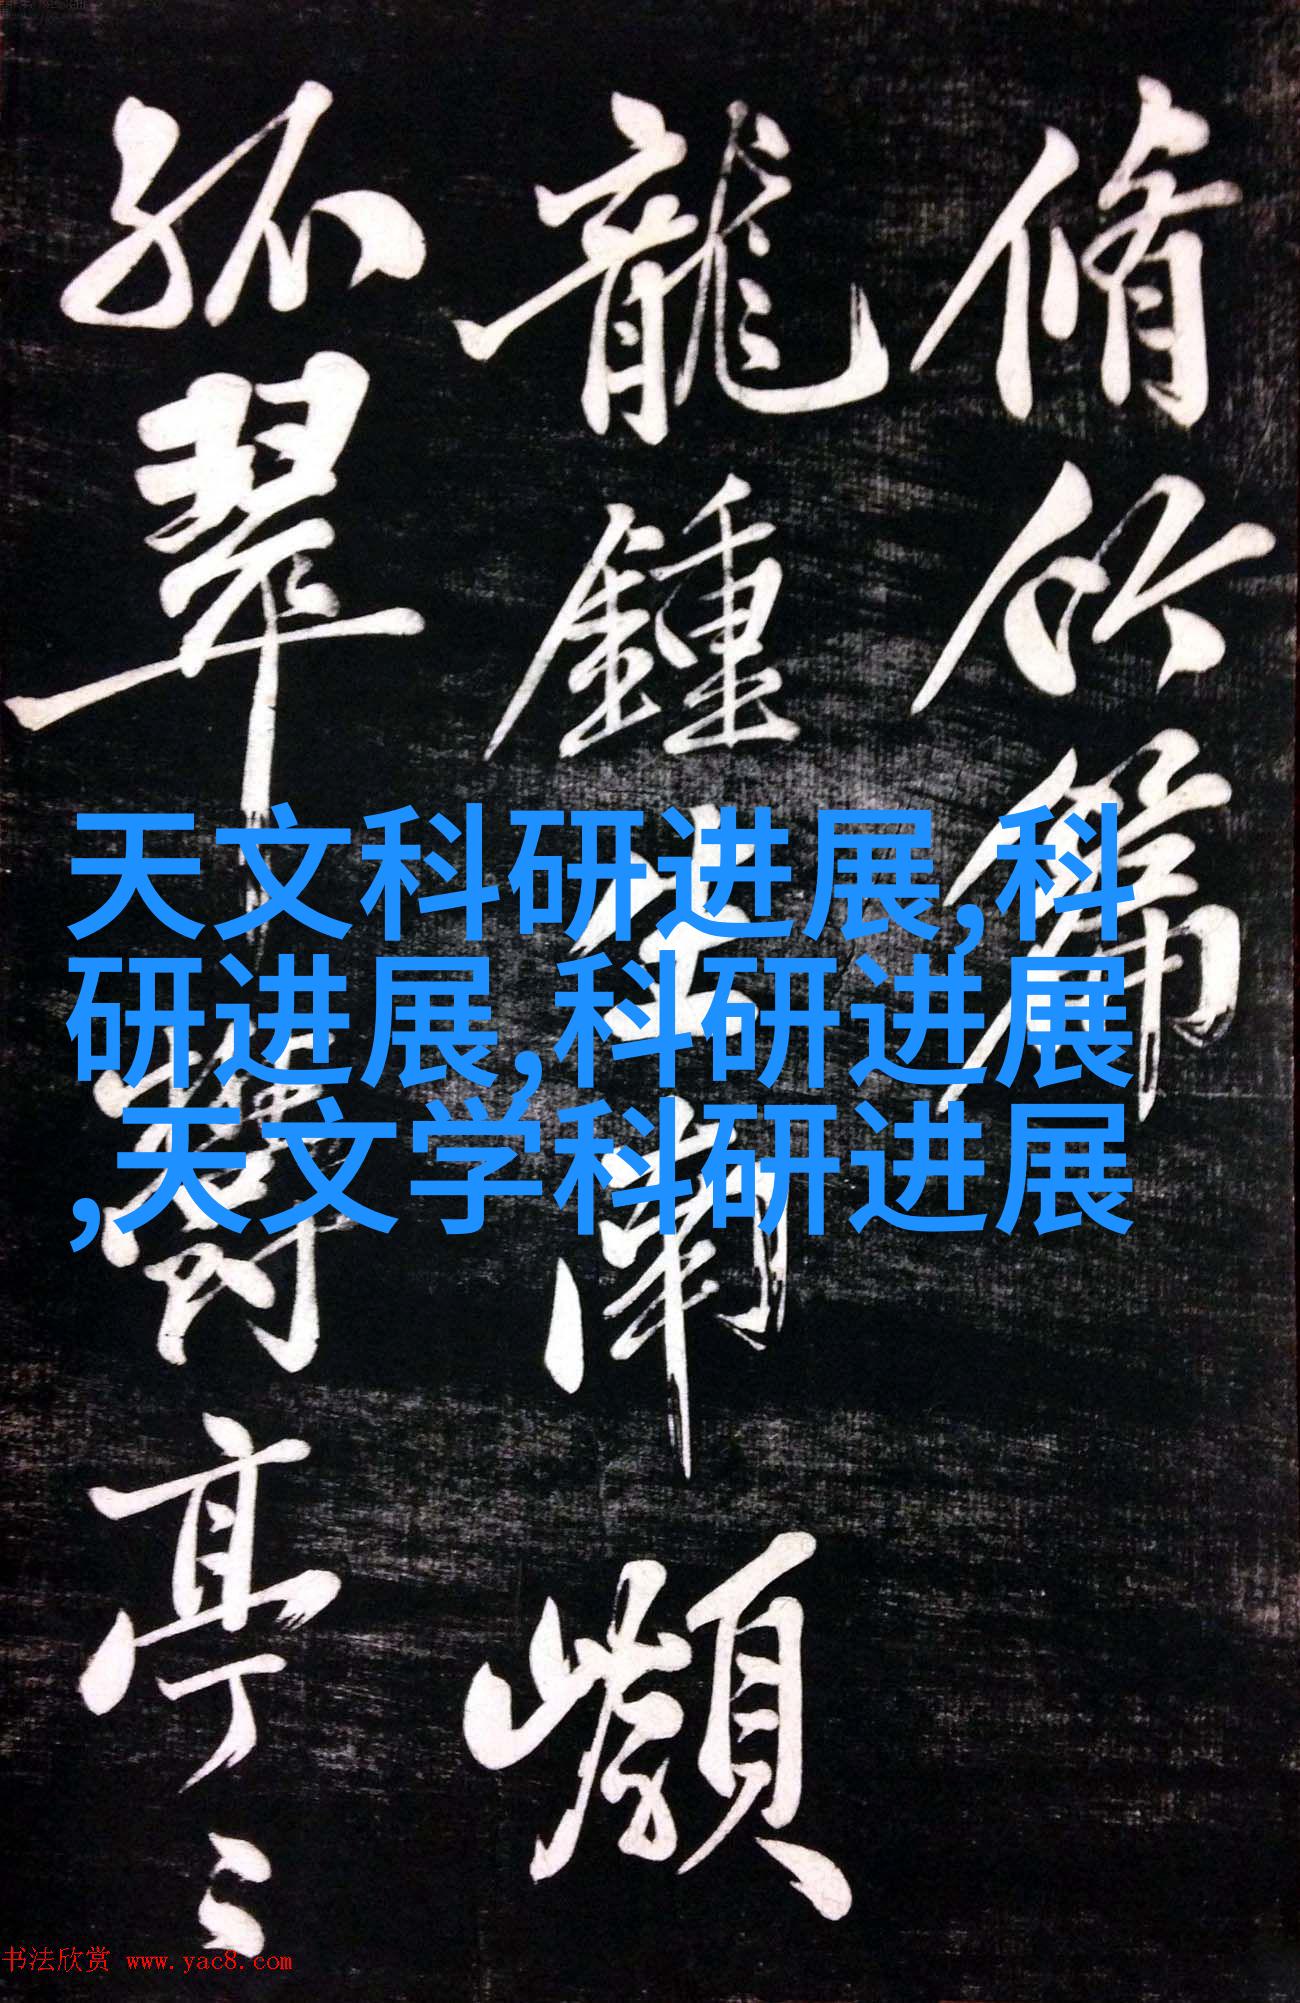 脩竹篇
龍鍾生南嶽
孤翠鬱亭亭
天文科研进展,科
研进展,科研进展
,天文学科研进展
书法欣赏 www.yac8.com